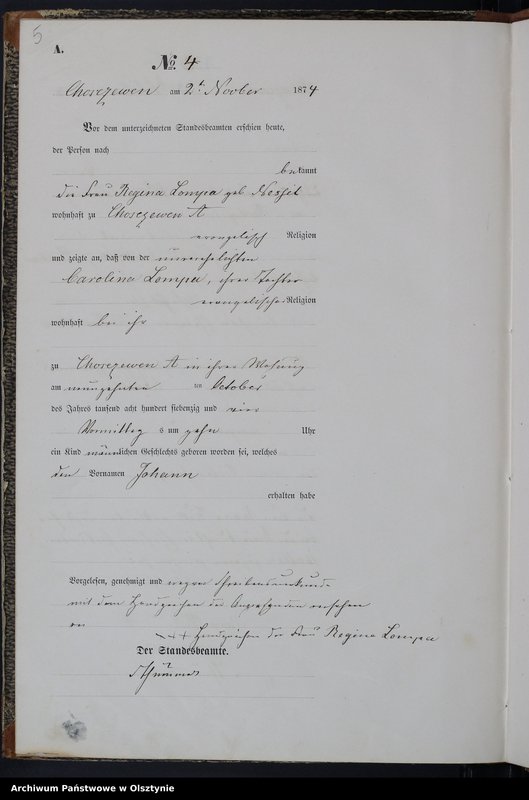 5
A.
No. 4
Chosczewen am 2t Novber 1874
Vor dem unterzeichneten Standesbeamten erschien heute,
der Person nach
bekannt
die Frau Regina Lompa geb.
wohnhaft zu Chosczewen A
evangelisch Religion
und zeigte an, daß von der unverehelichten
Carolina Lompa, ihrer Tochter
evangelischer Religion
wohnhaft bei ihr
zu Chosczewen A in ihrer Wohnung
am neunzehnten ten October
des Jahres tausend acht hundert siebenzig und vier
Vormittag s um zehn Uhr
ein Kind männlichen Geschlechts geboren worden sei, welches
den Vornamen Johann
erhalten habe
Vorgelesen, genehmigt und wegen Schreibensunkunde
mit dem Handzeichen der versehen
+++ Handzeichen der Frau Regina Lompa
Der Standesbeamte.
Archiwum Państwowe w Olsztynie